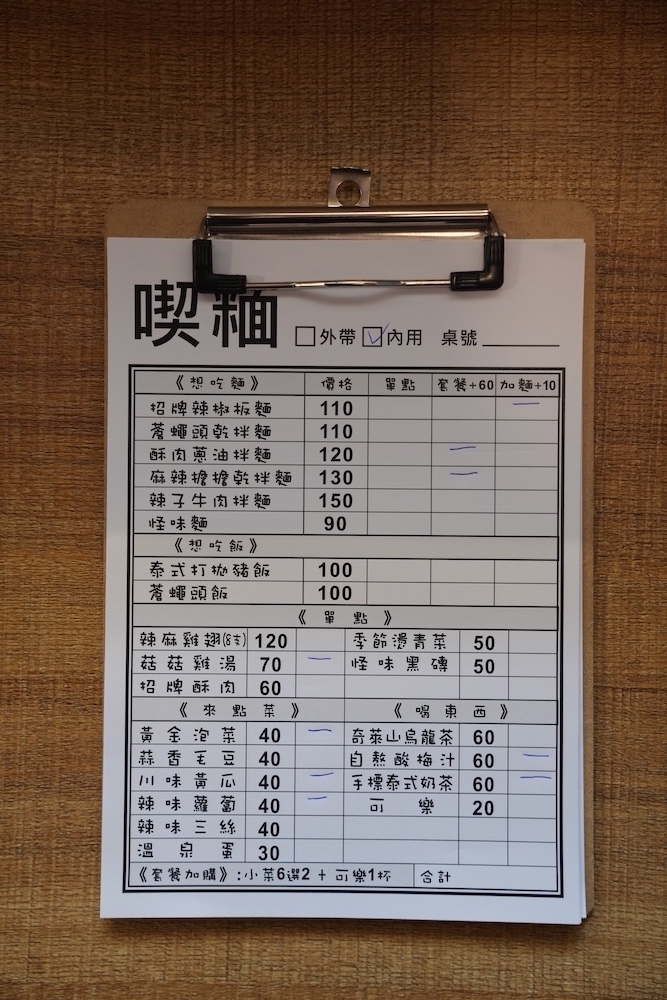 喫麵
□外帶 ☑內用 桌號
《想吃麵》 價格 單點 套餐+60 加麵+10
招牌辣椒板麵 110
蒼蠅頭乾拌麵 110
酥肉蔥油拌麵 120
麻辣擔擔乾拌麵 130
辣子牛肉拌麵 150
怪味麵 90
《想吃飯》
泰式打拋豬飯 100
蒼蠅頭飯 100
《單點》
辣麻雞翅(8支) 120 季節燙青菜 50
菇菇雞湯 70 怪味黑磚 50
招牌酥肉 60
《來點菜》 《喝東西》
黃金泡菜 40 奇萊山烏龍茶 60
蒜香毛豆 40 自熬酸梅汁 60
川味黃瓜 40 手標泰式奶茶 60
辣味蘿蔔 40 可樂 20
辣味三絲 40
溫泉蛋 30
《套餐加購》:小菜6選2 + 可樂1杯 合計